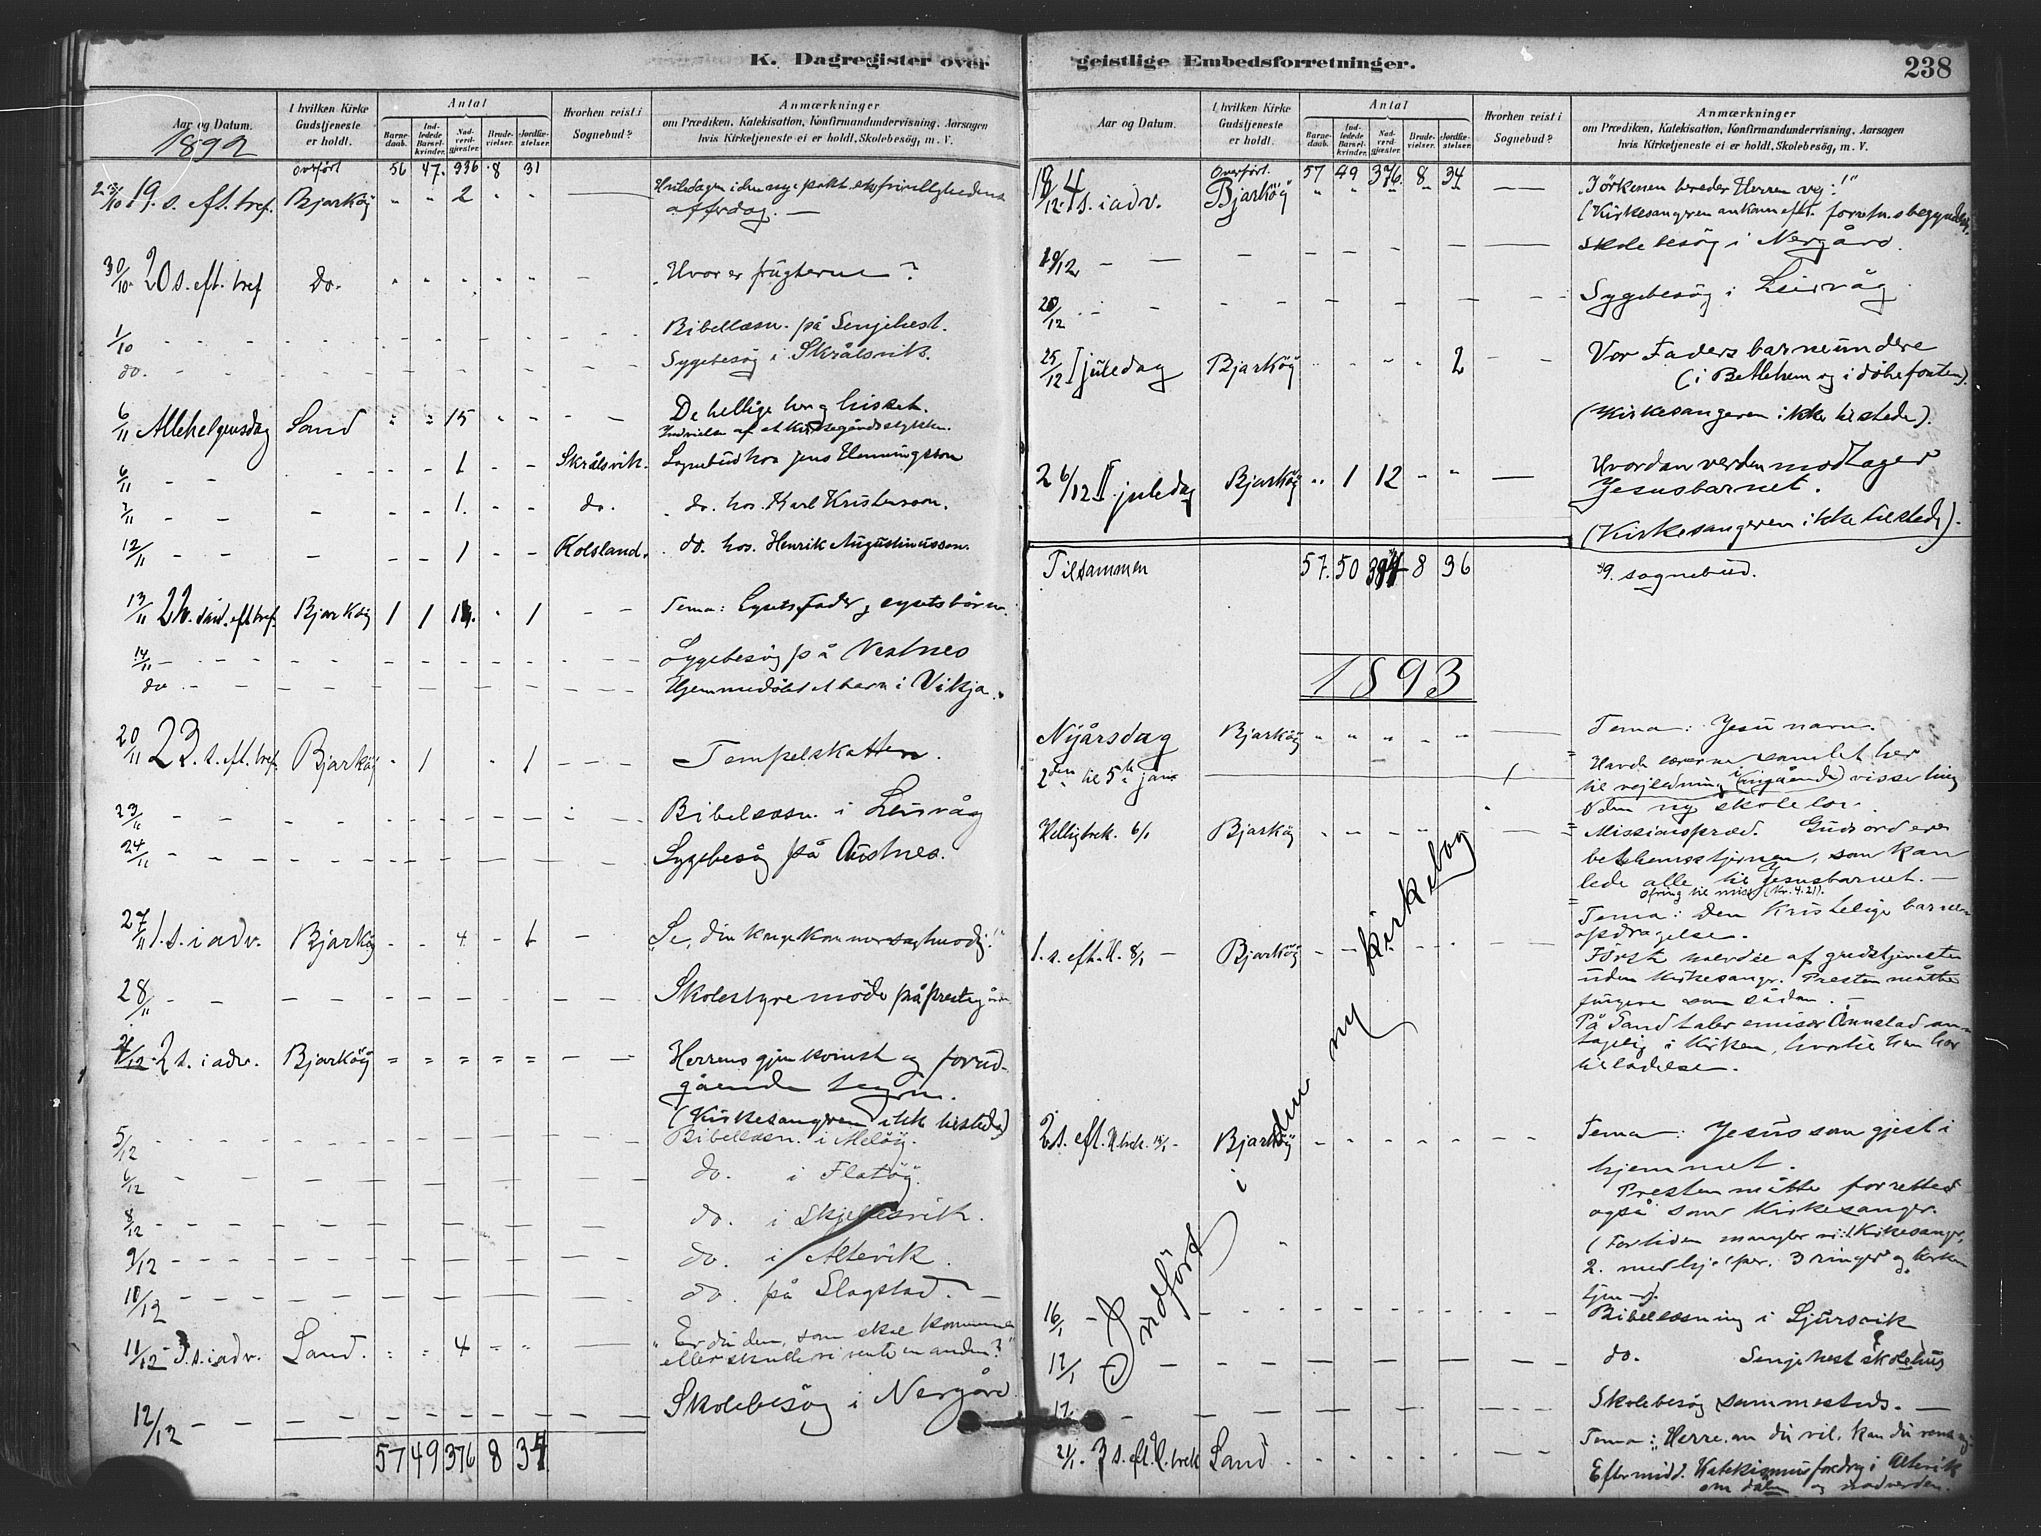 K. Dagregister over
geistlige Embedsforretninger.
238
Aar og Datum.
1892
I hvilken Kirke Gudstjeneste er holdt.
Antal
Barnedaab.
Indledede Barselkvinder.
Nadverdgjæster.
Brudevielser.
Jordfæstelser.
Hvorhen reist i Sognebud?
Anmærkninger
om Prædiken, Katekisation, Konfirmandundervisning. Aarsagen
hvis Kirketjeneste ei er holdt. Skolebesög, m. V.
overført 56 47 336 8 31
23/10 19. s. eft. tref. Bjarköy " " 2 " " Hviledagen i den nye pakt er frivillighedens
offerdag. —
30/10 20 s. eft. tref do. Hvor er frugterne?
1/10 Bibellæsn. på Senjehest.
do. Sygebesög i Skrålsvik.
6/11 Allehelgensdag Sand " " 15 De hellige hen g
Indvielse af et kirkegårdsstykke.
6/11 1 Skrålsvik. Sognebud hos Jens Henningsson
7/11 1 do. do. hos Karl Kristensson.
12/11 1 Kolsland. do. hos. Henrik Augustinusson.
13/11 22. sönd. eft. tref. Bjarköy 1 1 1 Tema: Lysets Fader, lysets börn.
14/11 Sygebesög på Vestnes
do Hjemmedöbt et barn i Vikja.
20/11 23. s. eft. tref. Bjarköy 1 1 Tempelskatten.
23/11 Bibellæsn. i Leirvåg
24/11 Sygebesög på Austnes.
27/11 1. s. i adv. Bjarköy 4 "Se, din konge kommer sagtmodig!"
28/11 Skolestyremöde på prestegården
4/12 2 s. i adv. Bjarköy = = = = = Herrens gjenkomst og forud-
gående tegn.
(Kirkesangeren ikke tilstede)
5/12 Bibellæsn. i Melöy.
6/12 do. i Flatöy.
8/12 do. i Skjellesvik.
9/12 do. i Altevik.
10/12 do. på Slagstad. —
11/12 3. s. i adv. Sand. 4 "Er du den, som skal komme
eller skulle vi vente en anden?"
12/12 Skolebesög i Nergård
57 49 376 8 34
Aar og Datum.
I hvilken Kirke Gudstjeneste er holdt.
Antal
Barnedaab.
Indledede Barselkvinder.
Nadverdgjæster.
Brudevielser.
Jordfæstelser.
Hvorhen reist i Sognebud?
Anmærkninger
om Prædiken, Katekisation, Konfirmandundervisning. Aarsagen
hvis Kirketjeneste ei er holdt. Skolebesög, m. V.
Overført. 57 49 376 8 34
18/12 4 s. i adv. Bjarköy "Törkenen bereder Herren vej!"
(Kirkesangeren ankom eft. forretn.s begyndelse.
19/12 Skolebesög i Nergård.
20/12 Sygebesög i Leirvåg
25/12 I juledag Bjarköy 2 Vor Faders barneundere
(i Betlehem og i döbefonten).
(Kirkesangeren ikke tilstede).
26/12 II juledag Bjarköy " 1 12 Hvordan verden modtager
Jesusbarnet.
(Kirkesangeren ikke tilstede).
Tilsammen 57. 50 394 8 36 9. sognebud.
1893
Nyårsdag Bjarköy Tema: Jesu navn.
2den til 5te jan 1 Havde lærerne samlet her
til vejledning (angående) visse ting
i den ny skolelov.
Helligtrek. 6/1 Bjarköy Missionspræd. Guds ord er
betlehemsstjernen, som kan
lede alle til Jesusbarnet. —
Ofring til miss. (Kr. 4.21).
Tema: Den kristelige barne-
opdragelse.
1. s. eft. H. 8/1 Bjarköy Förste halvdel af gudstjenesten
uden kirkesanger. Presten måtte
fungere som sådan. —
På Sand taler emissær Aunstad an-
tagelig i kirken, hvortil han har
tilladelse.
2. s. eft. H. trek. 15/1 Bjarköy Tema: Jesus som gjest i
hjemmet.
Presten måtte forrette
også som kirkesanger.
(For tiden mangler vi: 1 kirkesanger,
2. medhjelper. 3 ringer og kirke-
tjener).
16/1 Bibellæsning i Ljursvik
17/1 do. Senjehest skolehus
17. Skolebesög sammesteds. —
22/1. 3 s. eft. H. trek Sand Tema: "Herre, om du vil, kan du rense mig
Eftermidd. Katekismusforedrag i Altevik
om dåben og nadverden.
Indfört i den ny kirkebog